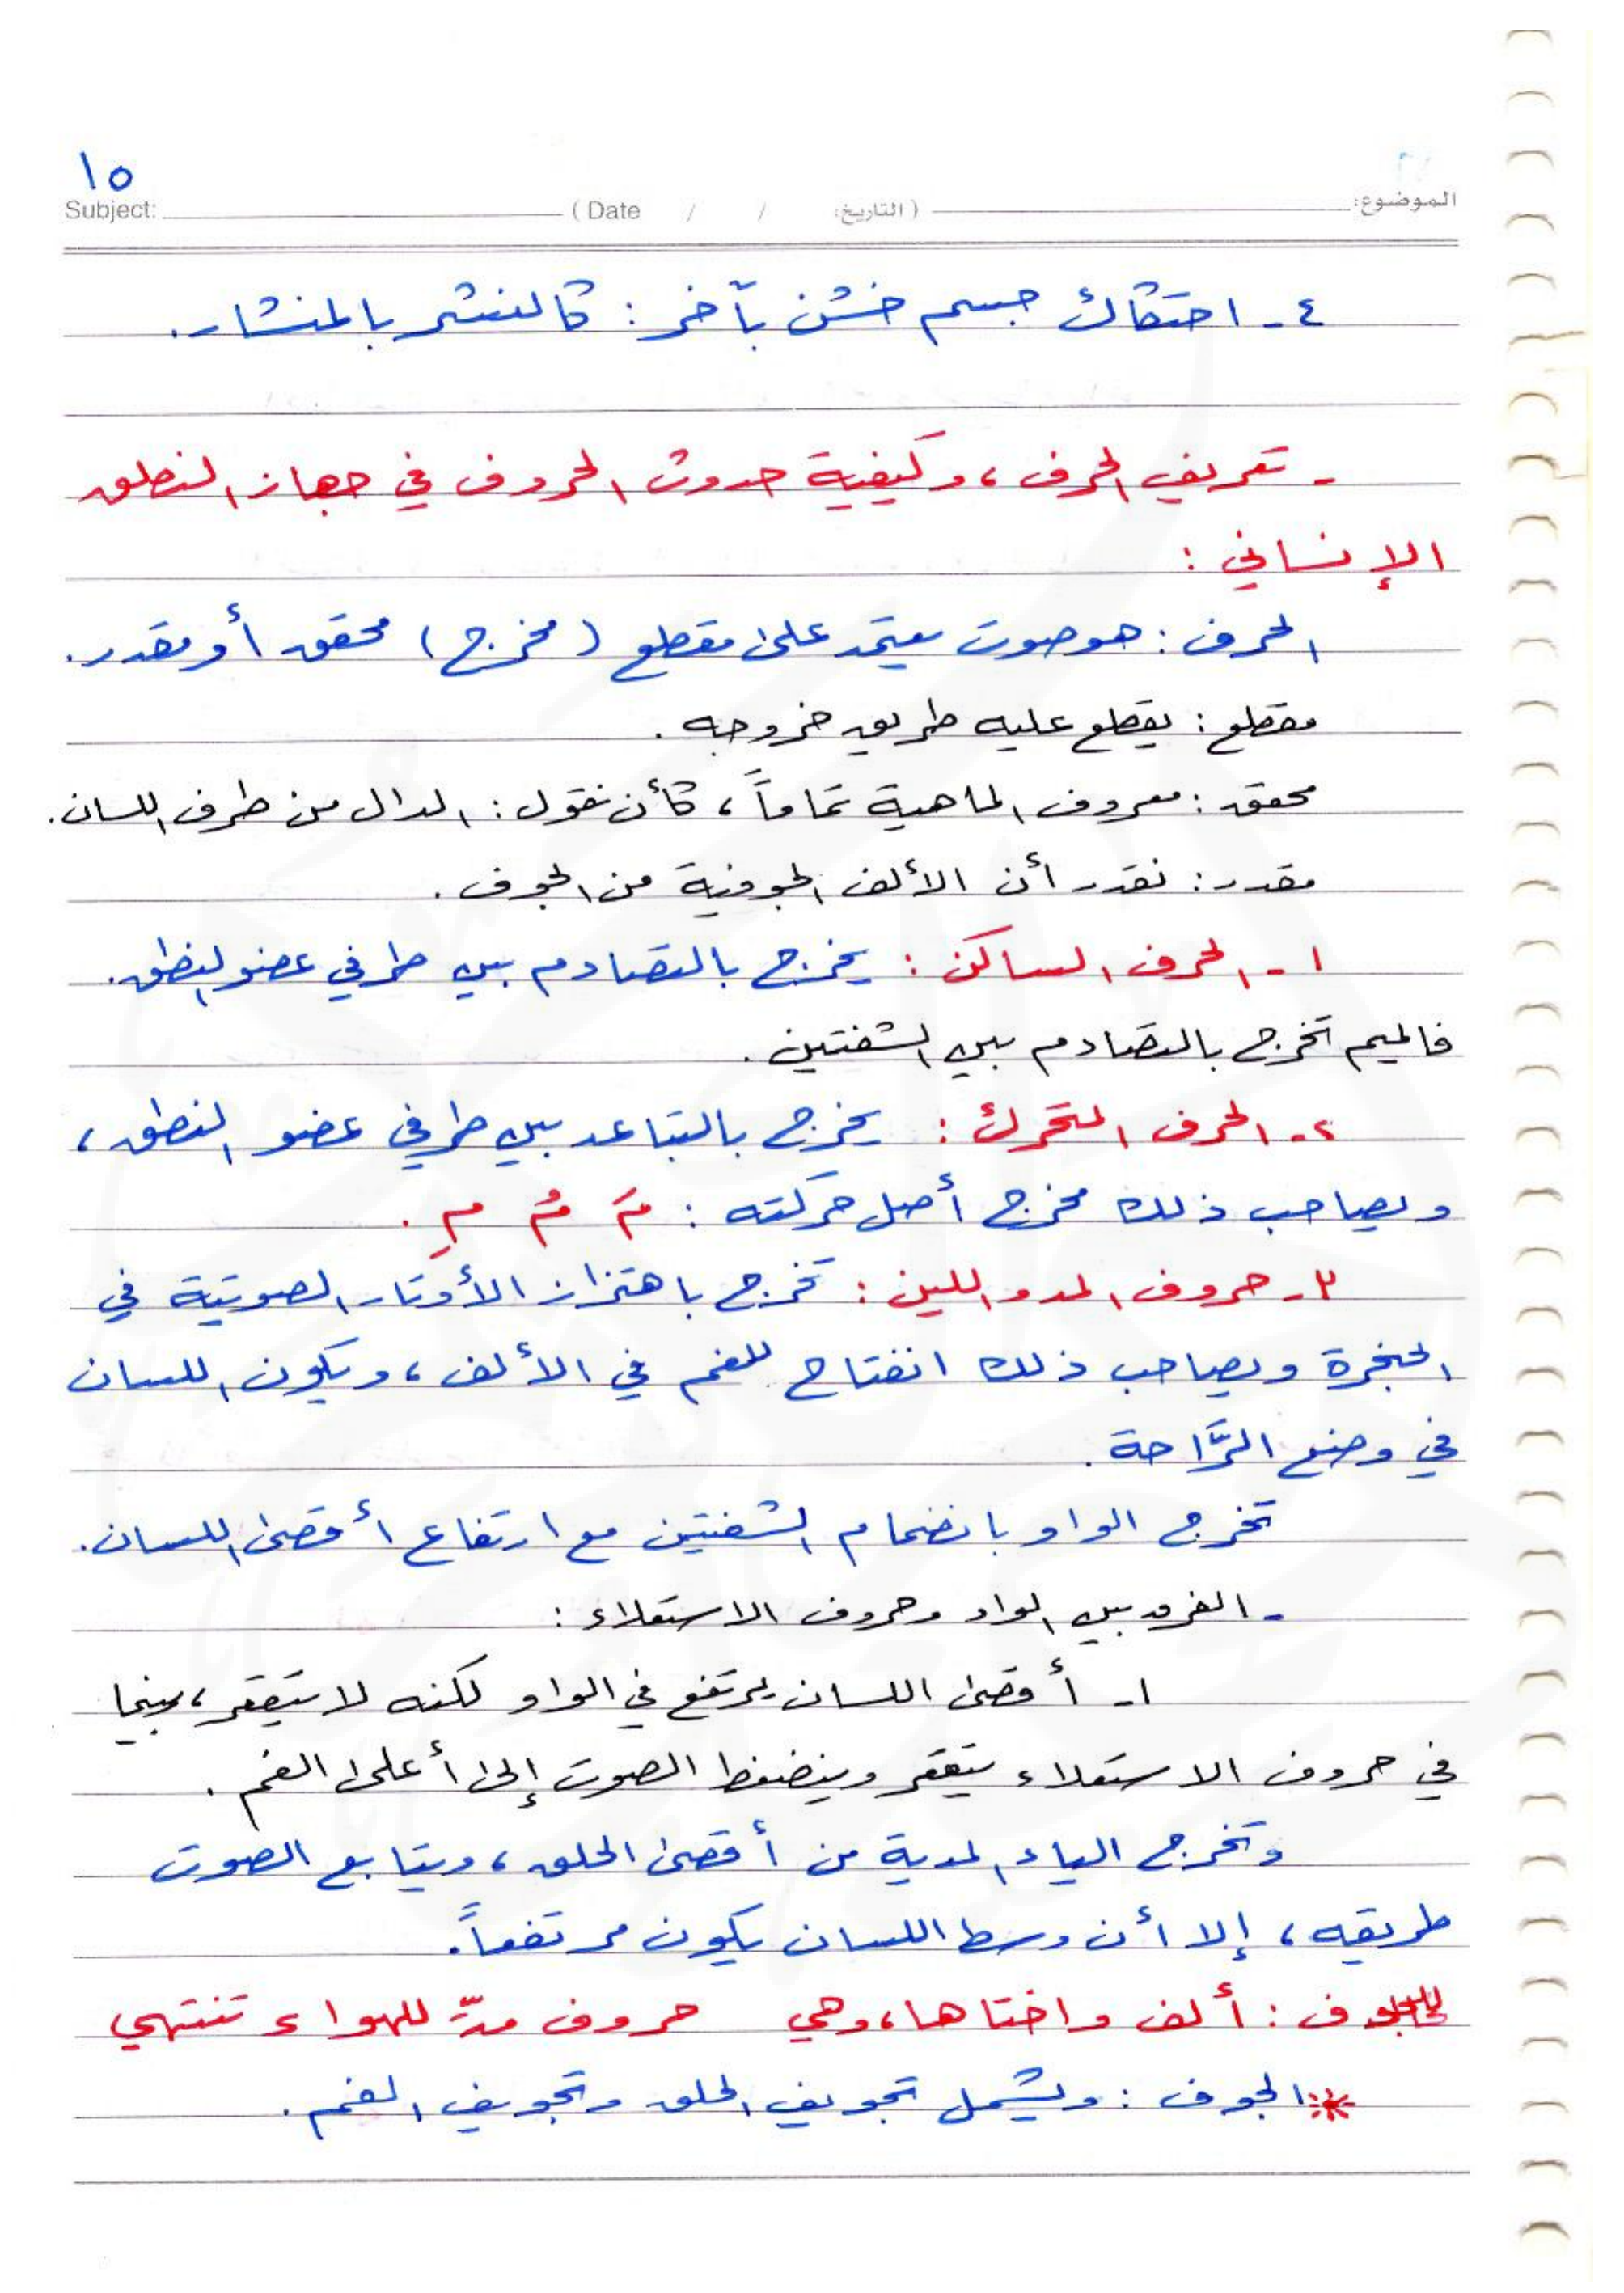 ١٥
Subject: (Date / / التاريخ) الموضوع:
٤- احتكاك جسم خشن بآخر: كالنشر بالمنشار.
- تعريف الحرف، وكيفية حدوث الحروف في جهاز النطق
الإنساني:
الحرف: هو صوت يعتمد على مقطع (مخرج) محقق أو مقدر.
مقطع: يقطع عليه طريق خروجه.
محقق: معروف الماهية تماماً، كأن نقول: الدال من طرف اللسان.
مقدر: نقدر أن الألف الجوفية من الجوف.
١- الحرف الساكن: يخرج بالتصادم بين طرفي عضو النطق.
فالميم تخرج بالتصادم بين الشفتين.
٢- الحرف المتحرك: يخرج بالتباعد بين طرفي عضو النطق،
ويصاحب ذلك مخرج أصل حركته: مَ مُ مِ.
٣- حروف المد واللين: تخرج باهتزاز الأوتار الصوتية في
الحنجرة ويصاحب ذلك انفتاح للفم في الألف، ويكون اللسان
في وضع الرَّاحة.
تخرج الواو بانضمام الشفتين مع ارتفاع أقصى اللسان.
- الفرق بين الواو وحروف الاستعلاء:
١- أقصى اللسان يرتفع في الواو لكنه لا يتقعر، بينما
في حروف الاستعلاء يتقعر وينضغط الصوت إلى أعلى الفم.
وتخرج الياء المدية من أقصى الحلق، ويتابع الصوت
طريقه، إلا أن وسط اللسان يكون مرتفعاً.
للجوف: ألف واختاها، وهي حروف مدّ للهواء تنتهي
* الجوف: ويشمل تجويف الحلق وتجويف الفم.